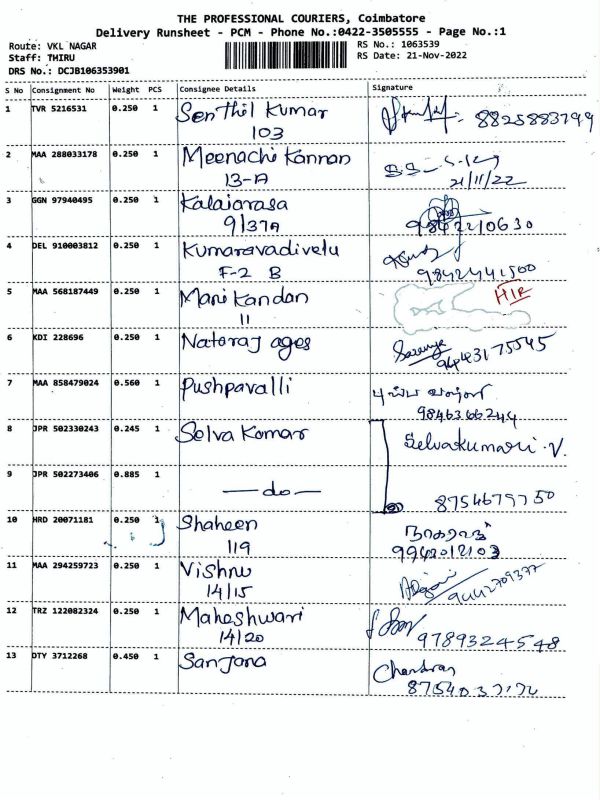 THE PROFESSIONAL COURIERS, Coimbatore
Delivery Runsheet - PCM - Phone No.:0422-3505555 - Page No.:1
Route: VKL NAGAR
Staff: THIRU
DRS No.: DCJB106353901
RS No.: 1063539
RS Date: 21-Nov-2022
S No Consignment No Weight PCS Consignee Details Signature
1 TVR 5216531 0.250 1 Senthil Kumar 8825883799
103
2 MAA 288033178 0.250 1 Meenachi Kannan
13-A 21/11/22
3 GGN 97940495 0.250 1 Kalaiarasa
9/37A 9842210630
4 DEL 910003812 0.250 1 Kumaravadivelu
F-2 B 9842441500
5 MAA 568187449 0.250 1 Manikandan
11
6 KDI 228696 0.250 1 Nataraj ages Saranya
9444317 5545
7 MAA 858479024 0.560 1 Pushpavalli
9846366244
8 JPR 502330243 0.245 1 Selva Komar Selvakumari.V.
9 JPR 502273406 0.885 1
—do— 8754679750
10 HRD 20071181 0.250 1 Shaheen நாகராஜ்
119 9942012103
11 MAA 294259723 0.250 1 Vishnu
14/15 9442709377
12 TRZ 122082324 0.250 1 Maheshwari
14/20 9789324548
13 DTY 3712268 0.450 1 Sanjana Chandran